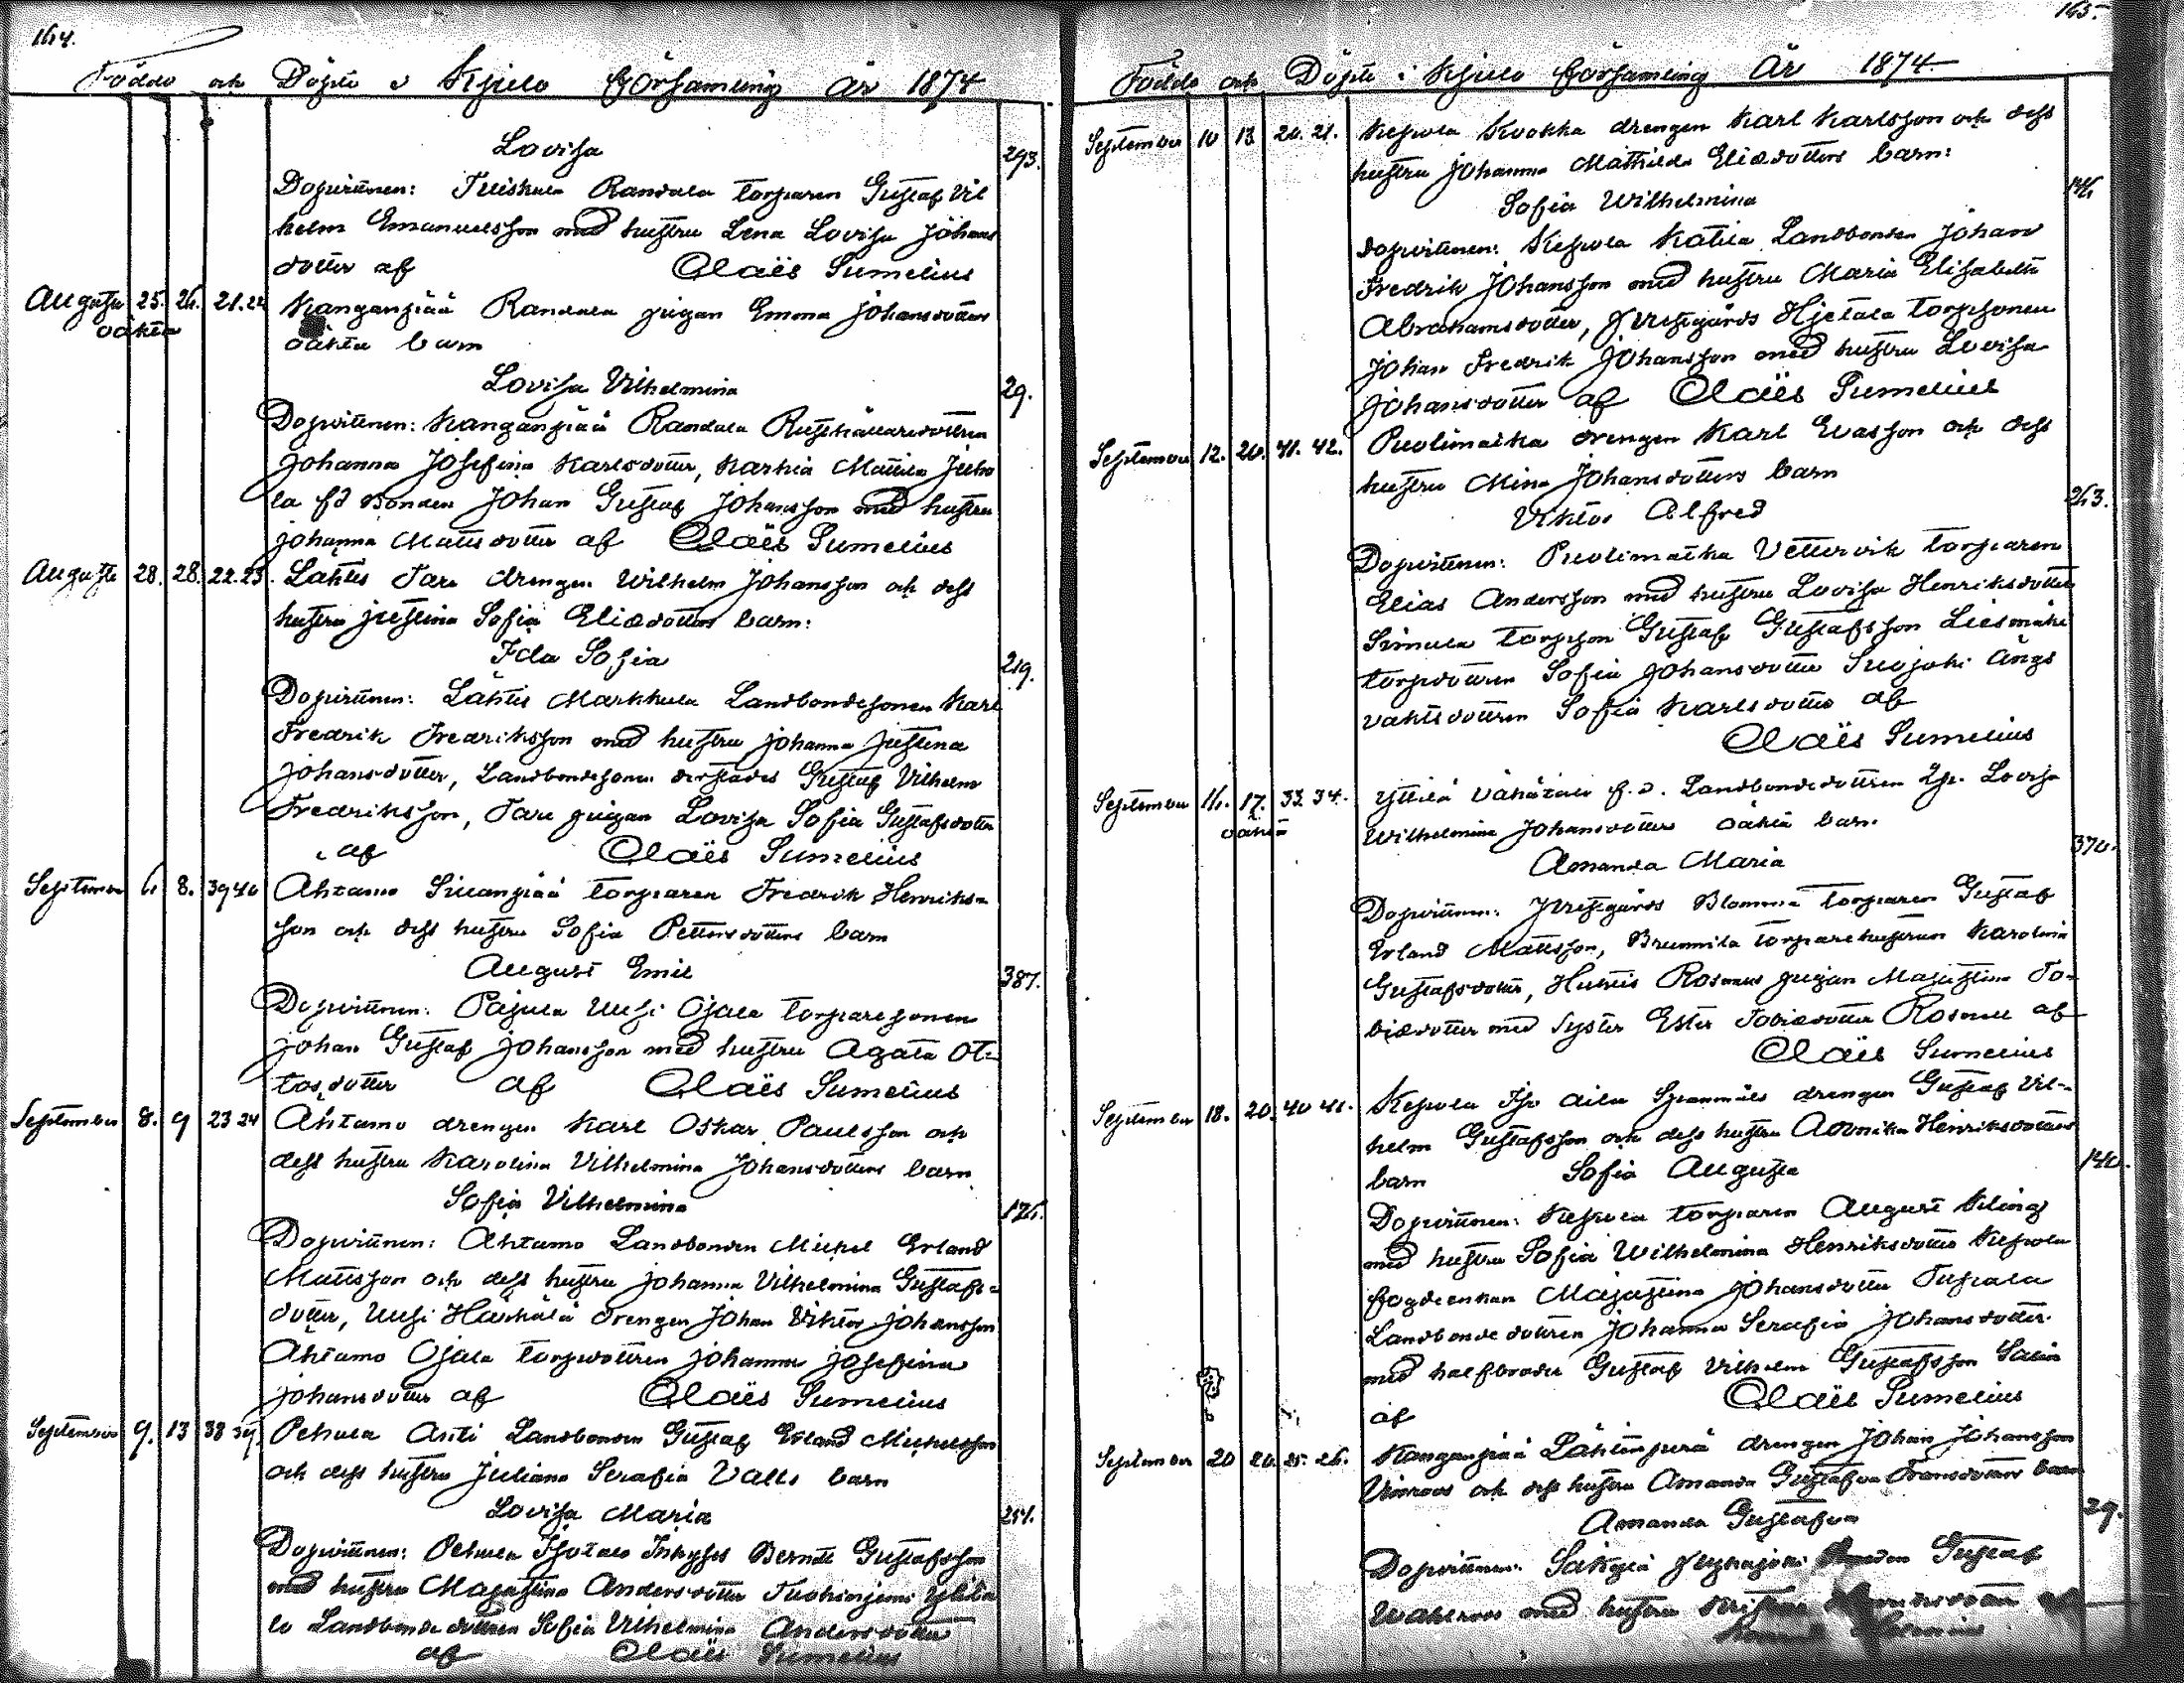 164.
Födde och Döpte i Kjulo Församling År 1874
Lovisa
293.
Dopvittnen: Tuiskula Randala torparen Gustaf Vil
helm Emanuelsson med hustru Lena Lovisa Johans
dotter af Claës Sumelius
Augusti 25. 26. 21.22 Kanganpää Randala pigan Emma Johansdotters
oäkta oäkta barn
Lovisa Vilhelmina
29.
Dopvittnen: Kanganpää Randala Rusthållaredottren
Johanna Josefina Karlsdotter, Karhia Mattila Juho
la fd Bonden Johan Gustaf Johansson med hustru
Johanna Mattsdotter af Claës Sumelius
Augusti 28. 28. 22.23. Lähtis Taru drengen Wilhelm Johansson och dess
hustru Justina Sofia Eliædotters barn:
Ida Sofia
219.
Dopvittnen: Lähtis Markkula Landbondesonen Karl
Fredrik Fredriksson med hustru Johanna Justina
Johansdotter, Landbondesonen derstädes Gustaf Vilhelm
Fredriksson, Taru pigan Lovisa Sofia Gustafsdotter
af Claës Sumelius
September 6. 8. 39 40 Ahtamo torparen Fredrik Henriks-
son och dess hustru Sofia Pettersdotters barn
August Emil
387.
Dopvittnen: Pajula Uusi Ojala torparesonen
Johan Gustaf Johansson med hustru Agata Ot-
tosdotter af Claës Sumelius
September 8. 9 23 24 Ahtamo drengen Karl Oskar Paulsson och
dess hustru Karolina Vilhelmina Johansdotters barn
Sofia Vilhelmina
176.
Dopvittnen: Ahtamo Landbonden Michel Erland
Mattsson och dess hustru Johanna Vilhelmina Gustafs-
dotter, Uusi Härkälä drengen Johan Viktor Johansson
Ahtamo Ojala torpdottren Johanna Josefina
Johansdotter af Claës Sumelius
September 9. 13 38 39. Pehula Antti Landbonden Gustaf Erland Michelsson
och dess hustru Juliana Serafia Valls barn
Lovisa Maria
254.
Dopvittnen: Pehula Isotalo Inhyses Berndt Gustafsson
med hustru Majastina Andersdotter Tuohiniemi Ylita
lo Landbondedottren Sofia Vilhelmina Andersdotter
af Claës Sumelius
165.
Födde och Döpte i Kjulo Församling År 1874
September 10 13 20. 21. Kepola Kuokka drengen Karl Karlsson och dess
hustru Johanna Mathilda Eliædotters barn:
Sofia Wilhelmina
146
Dopvittnen: Kepola Katila Landbonden Johan
Fredrik Johansson med hustru Maria Elisabeth
Abrahamsdotter, Prestgårds Hjetala torpsonen
Johan Fredrik Johansson med hustru Lovisa
Johansdotter af Claës Sumelius
September 12. 20. 41. 42. Puolimatka drengen Karl Evasson och dess
hustru Mina Johansdotters barn
Viktor Alfred
263.
Dopvittnen: Puolimatka Vettervik torparen
Elias Andersson med hustru Lovisa Henriksdotter
torpson Gustaf Gustafsson Liesmäki
torpdottren Sofia Johansdotter Suojoki ängs
vaktsdottren Sofia Karlsdotter af
Claës Sumelius
September 16. 17. 33. 34. Yttilä Vähätalo f.d. Landbondedottren Lovisa
oäkta Wilhelmina Johansdotters oäkta barn.
Amanda Maria
370.
Dopvittnen: Prestgårds Blomma torparen Gustaf
Erland Mattsson, Brunnila torparehustrun Karolina
Gustafsdotter, Hurriis pigan Majastina To-
biædotter med syster Ester Tobiædotter af
Claës Sumelius
September 18. 20. 40 41. Kepola Iso Aila Spannmåls drengen Gustaf Vil-
helm Gustafsson och dess hustru Henriksdotters
barn Sofia Augusta
140.
Dopvittnen: Kepola torparen August Kling
med hustru Sofia Wilhelmina Henriksdotter Kepola
fogdeenkan Majastina Johansdotter
Landbondedottren Johanna Serafia Johansdotter
med halfbroder Gustaf Vilhelm Gustafsson Salin
af Claës Sumelius
September 20 20. 25. 26. Kanganpää Lähtenperä drengen Johan Johansson
och dess hustru Amanda Gustafva Fransdotters barn
Amanda Gustafva
29.
Dopvittnen: Säkylä Gustaf
Wahlroos med hustru